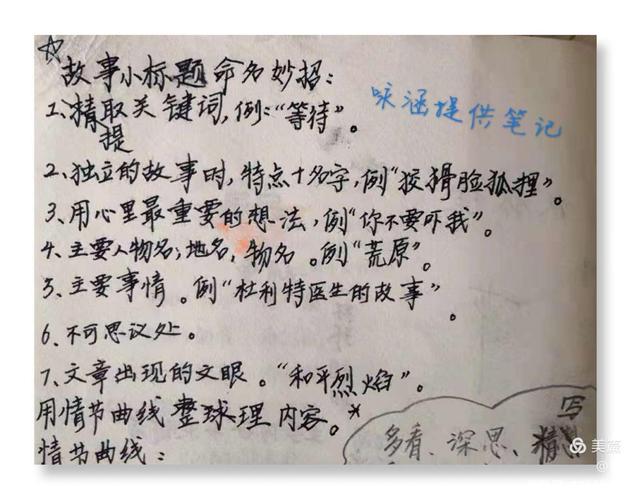 ☆故事小标题命名妙招:
1、精取关键词,例:“等待”。
提
咏涵提供笔记
2、独立的故事时,特点十名字,例“狡猾脸狐狸”。
3、用心里最重要的想法,例“你不要吓我”。
4、主要人物名;地名,物名。例“荒原”。
5、主要事情。例“杜利特医生的故事”。
6、不可思议处。
7、文章出现的文眼。“和平烈焰”。
用情节曲线整理内容。*
情节曲线:
写
多看、深思、精
美篇
@